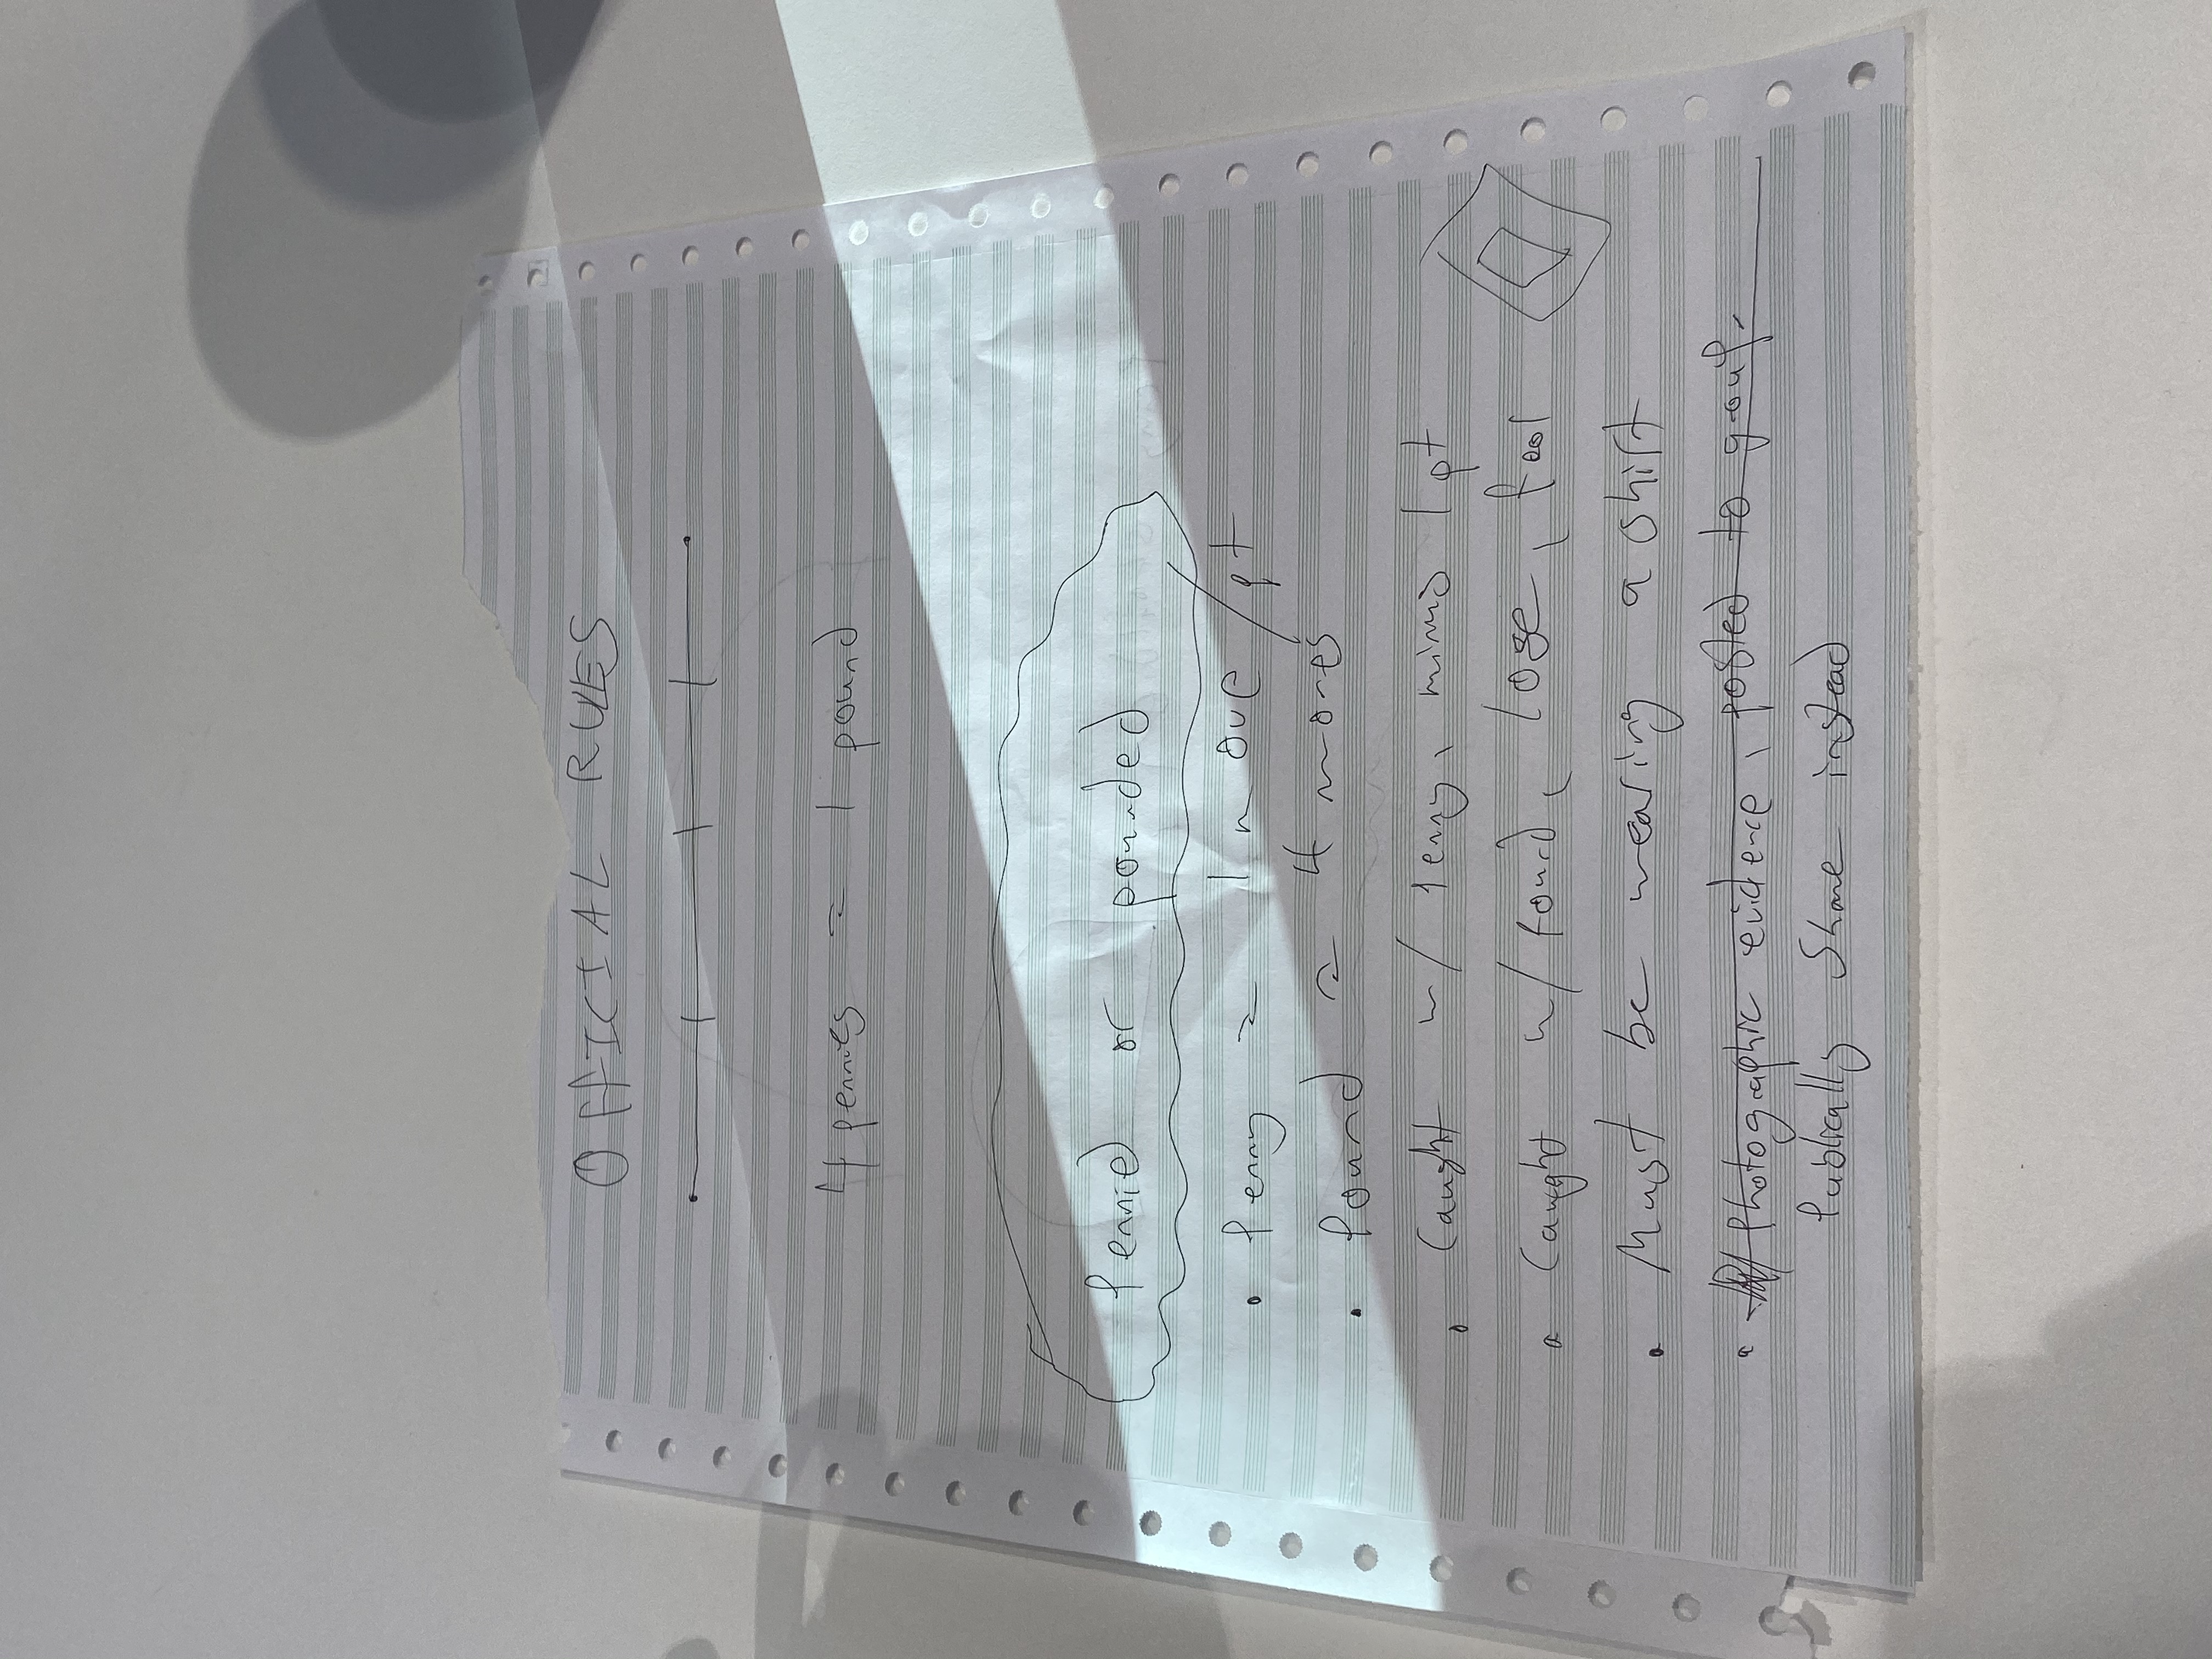 OFFICIAL RULES
4 pennies = 1 pound
Pennied or pounded
• Penny = 1 move / pt
• Pound = 4 moves
• Caught w/ Penny, minus 1 pt
• Caught w/ Pound, lose, fool
• Must be wearing a shirt
• Photographic evidence, posted to group.
Publically Shame instead